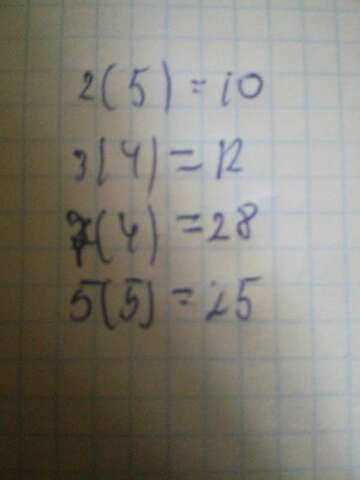 2(5)=10
3(4)=12
7(4)=28
5(5)=25